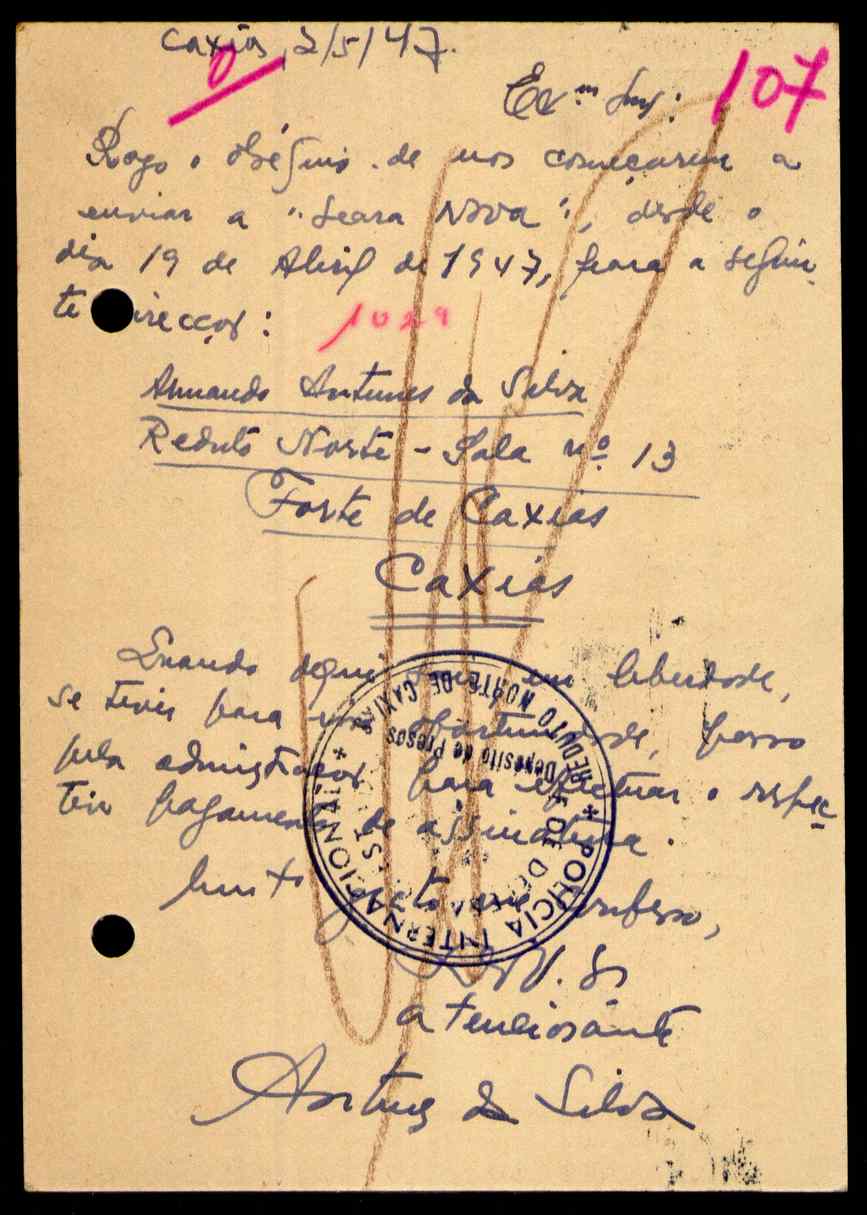 Caxias, 2/5/47.
0
107
Ex.mo Snr:
Rogo o obséquio de nos começarem a
enviar a "Seara Nova", desde o
dia 19 de Abril de 1947, para a seguin-
te direcção:
1029
Armando Antunes da Silva
Reduto Norte - Sala nº 13
Forte de Caxias
Caxias
Quando daqui em liberdade,
se tiver para isso oportunidade, passo
pela administração para efectuar o respec-
tivo pagamento de assinatura.
Muito grato me confesso,
de V. Sa
atenciosamente
Antunes da Silva
POLICIA INTERNACIONAL E DE DEFESA
REDUTO NORTE DE CAXIAS
Depósito de Presos